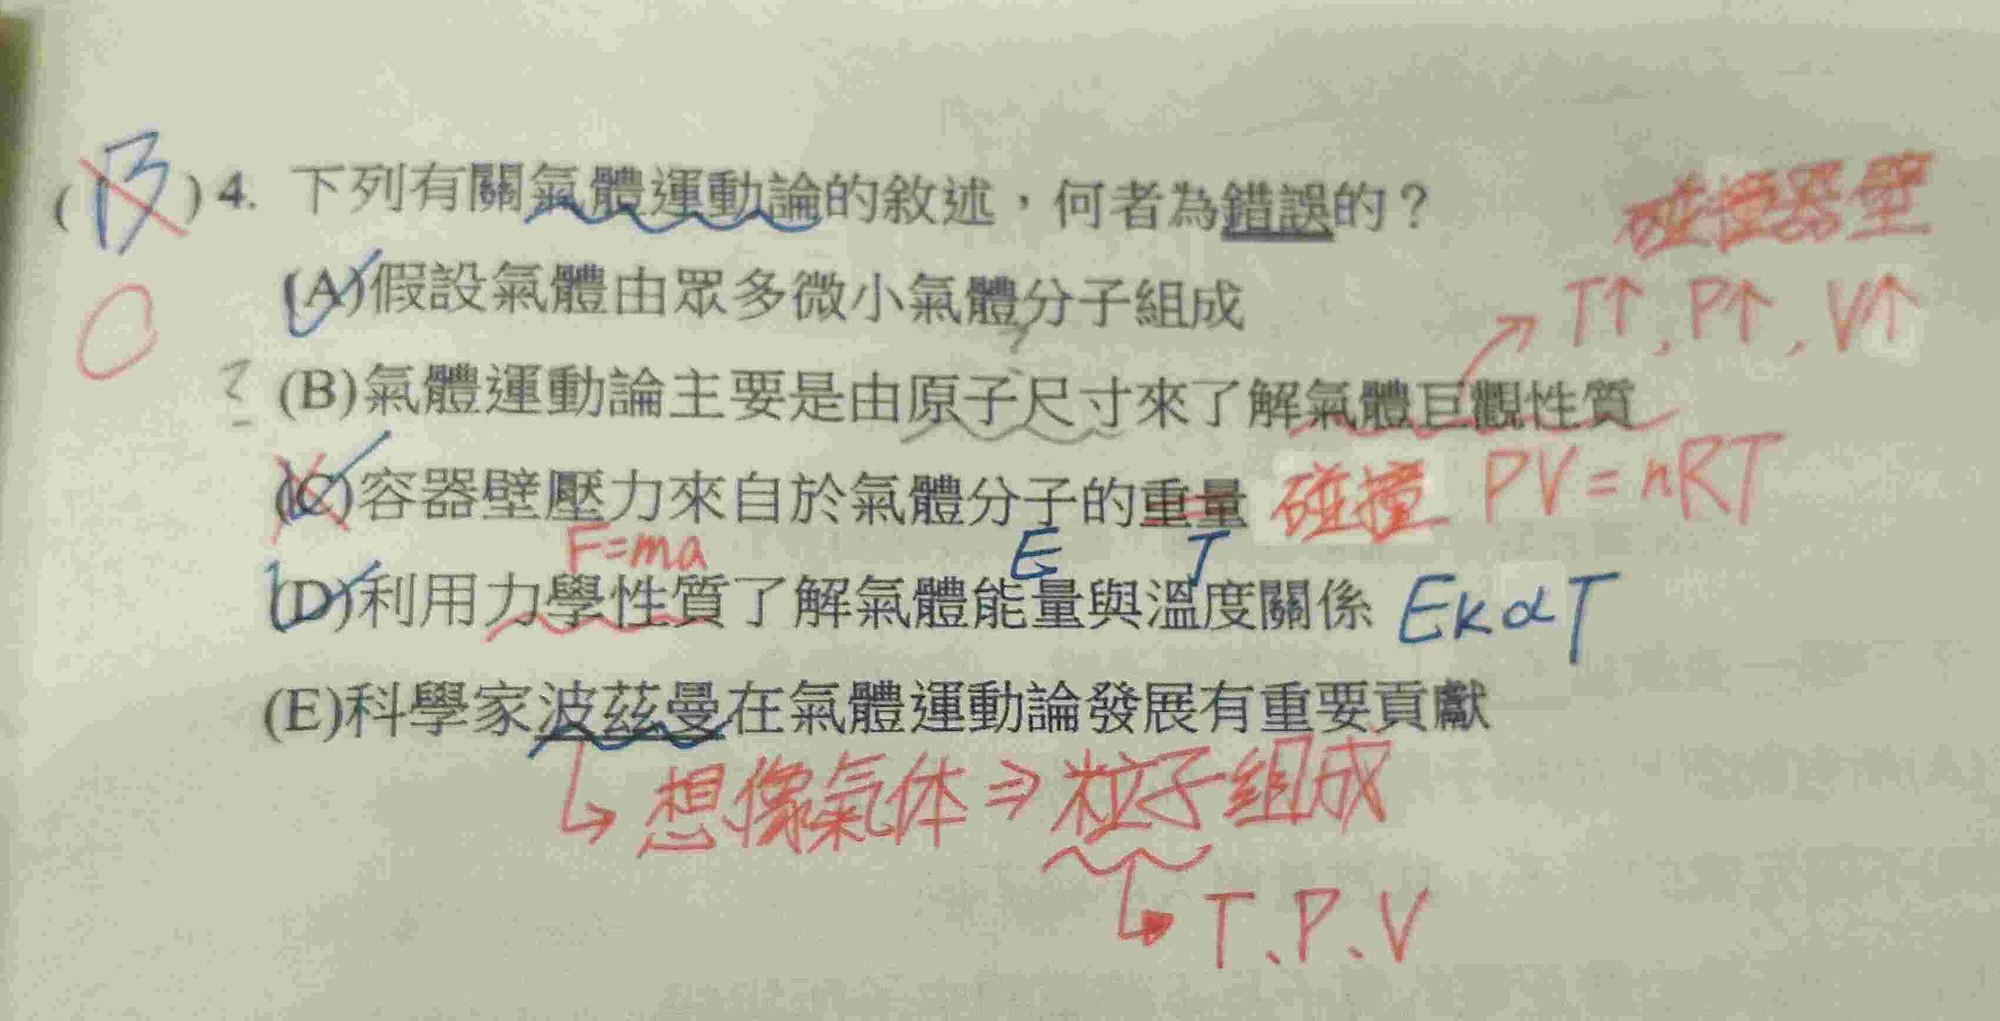 (B)4. 下列有關氣體運動論的敘述，何者為錯誤的？
碰撞器壁
(A)假設氣體由眾多微小氣體分子組成
T↑, P↑, V↑
? (B)氣體運動論主要是由原子尺寸來了解氣體巨觀性質
(C)容器壁壓力來自於氣體分子的重量 碰撞 PV=nRT
F=ma E T
(D)利用力學性質了解氣體能量與溫度關係 Ek∝T
(E)科學家波茲曼在氣體運動論發展有重要貢獻
↳ 想像氣体⇒粒子組成
↳ T、P、V